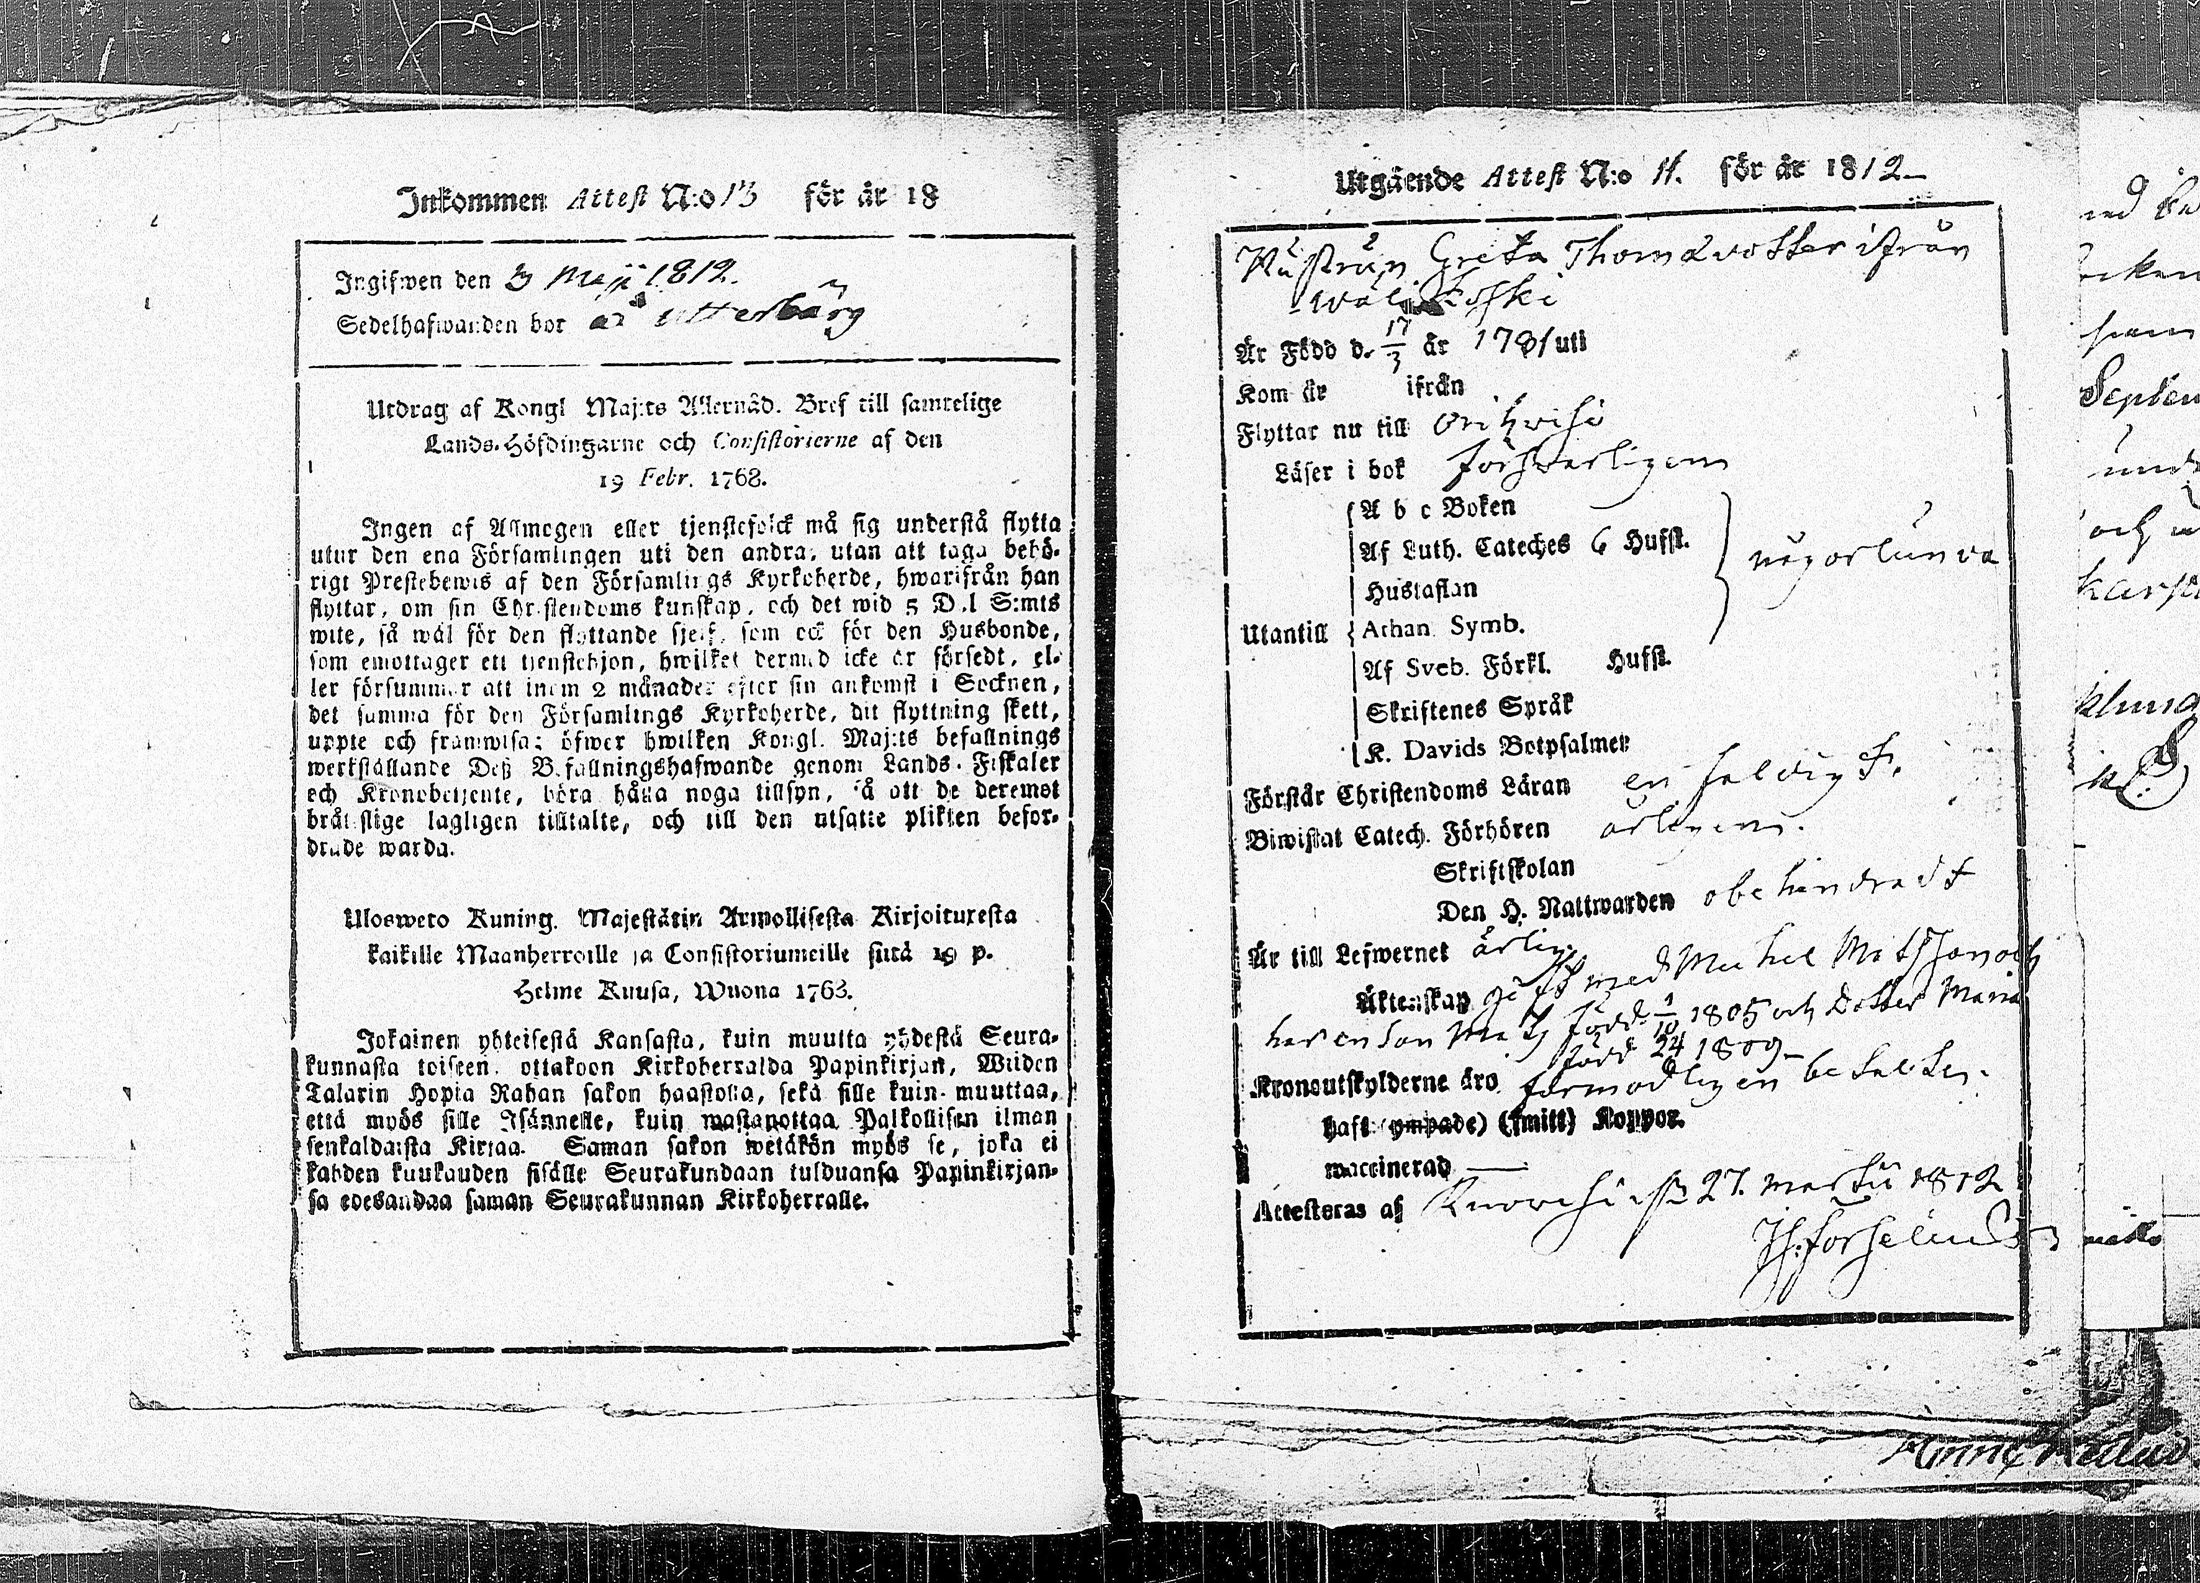 Inkommen Attest N:o 13 för år 18
Ingifwen den 3 Maji 1812.
Sedelhafwanden bor å Utterbärg
Utdrag af Kongl Maj:ts Allernåd. Bref till samtelige
Lands-Höfdingarne och Consistorierne af den
19 Febr. 1768.
Ingen af Allmogen eller tjenstefolck må sig understå flytta
utur den ena Församlingen uti den andra, utan att taga behö-
rigt Prestebewis af den Församlings Kyrkoherde, hwarifrån han
flyttar, om sin Christendoms kunskap, och det wid 5 D.l S:mts
wite, så wäl för den flyttande sjelf, som ock för den Husbonde,
som emottager ett tjenstehjon, hwilket dermed icke är försedt, el-
ler försummar att inom 2 månader efter sin ankomst i Socknen,
det samma för den Församlings Kyrkoherde, dit flyttning skett,
uppte och framwisa; öfwer hwilken Kongl. Maj:ts befallnings
werkställande Deß Befallningshafwande genom Lands-Fiskaler
och Kronobetjente, böra hålla noga tillsyn, så att de deremot
brätslige lagligen tilltalte, och till den utsatte plikten befor-
drade warda.
Ulosweto Kuning. Majestätin Armollisesta Kirjoituxesta
kaikille Maanherroille ja Consistoriumeille siitä 19 p.
Helme Kuusa, Wuona 1768.
Jokainen yhteisestä Kansasta, kuin muutta yhdestä Seura-
kunnasta toiseen, ottakoon Kirkoherralda Papinkirjan, Wiiden
Talarin Hopia Rahan sakon haastolla, sekä sille kuin muuttaa,
että myös sille Isännelle, kuin wastanottaa Palkollisen ilman
senkaldaista Kirjaa. Saman sakon wetäkön myös se, joka ei
kahden kuukauden sisälle Seurakundaan tulduansa Papinkirjan-
sa edesandaa saman Seurakunnan Kirkoherralle.
Utgående Attest N:o 11. för år 1812
Hustrun Greta Thomædotter ifrån
Är Född d. 17/3 år 1781 uti
Kom år ifrån
Flyttar nu till
Läser i bok förswarligen
A b c Boken
Af Luth. Cateches 6 Hufst.
Hustaflan
någorlunda
Utantill Athan. Symb.
Af Sveb. Förkl. Hufst.
Skriftenes Språk
K. Davids Botpsalmer
Förstår Christendoms Läran enfaldigt.
Biwistat Catech. Förhören årligen.
Skriftskolan
Den H. Nattwarden obehindradt
Är till Lefwernet ärlig
Äktenskap gift med Michel Matsson och
har en son Mats född 1/10 1805 och Dotter Maria
född 24 1809
Kronoutskylderne äro förmodligen betalte.
haft (ympade) (smitt) Koppor.
waccinerad
Attesteras af 27. Martii 1812
September
och